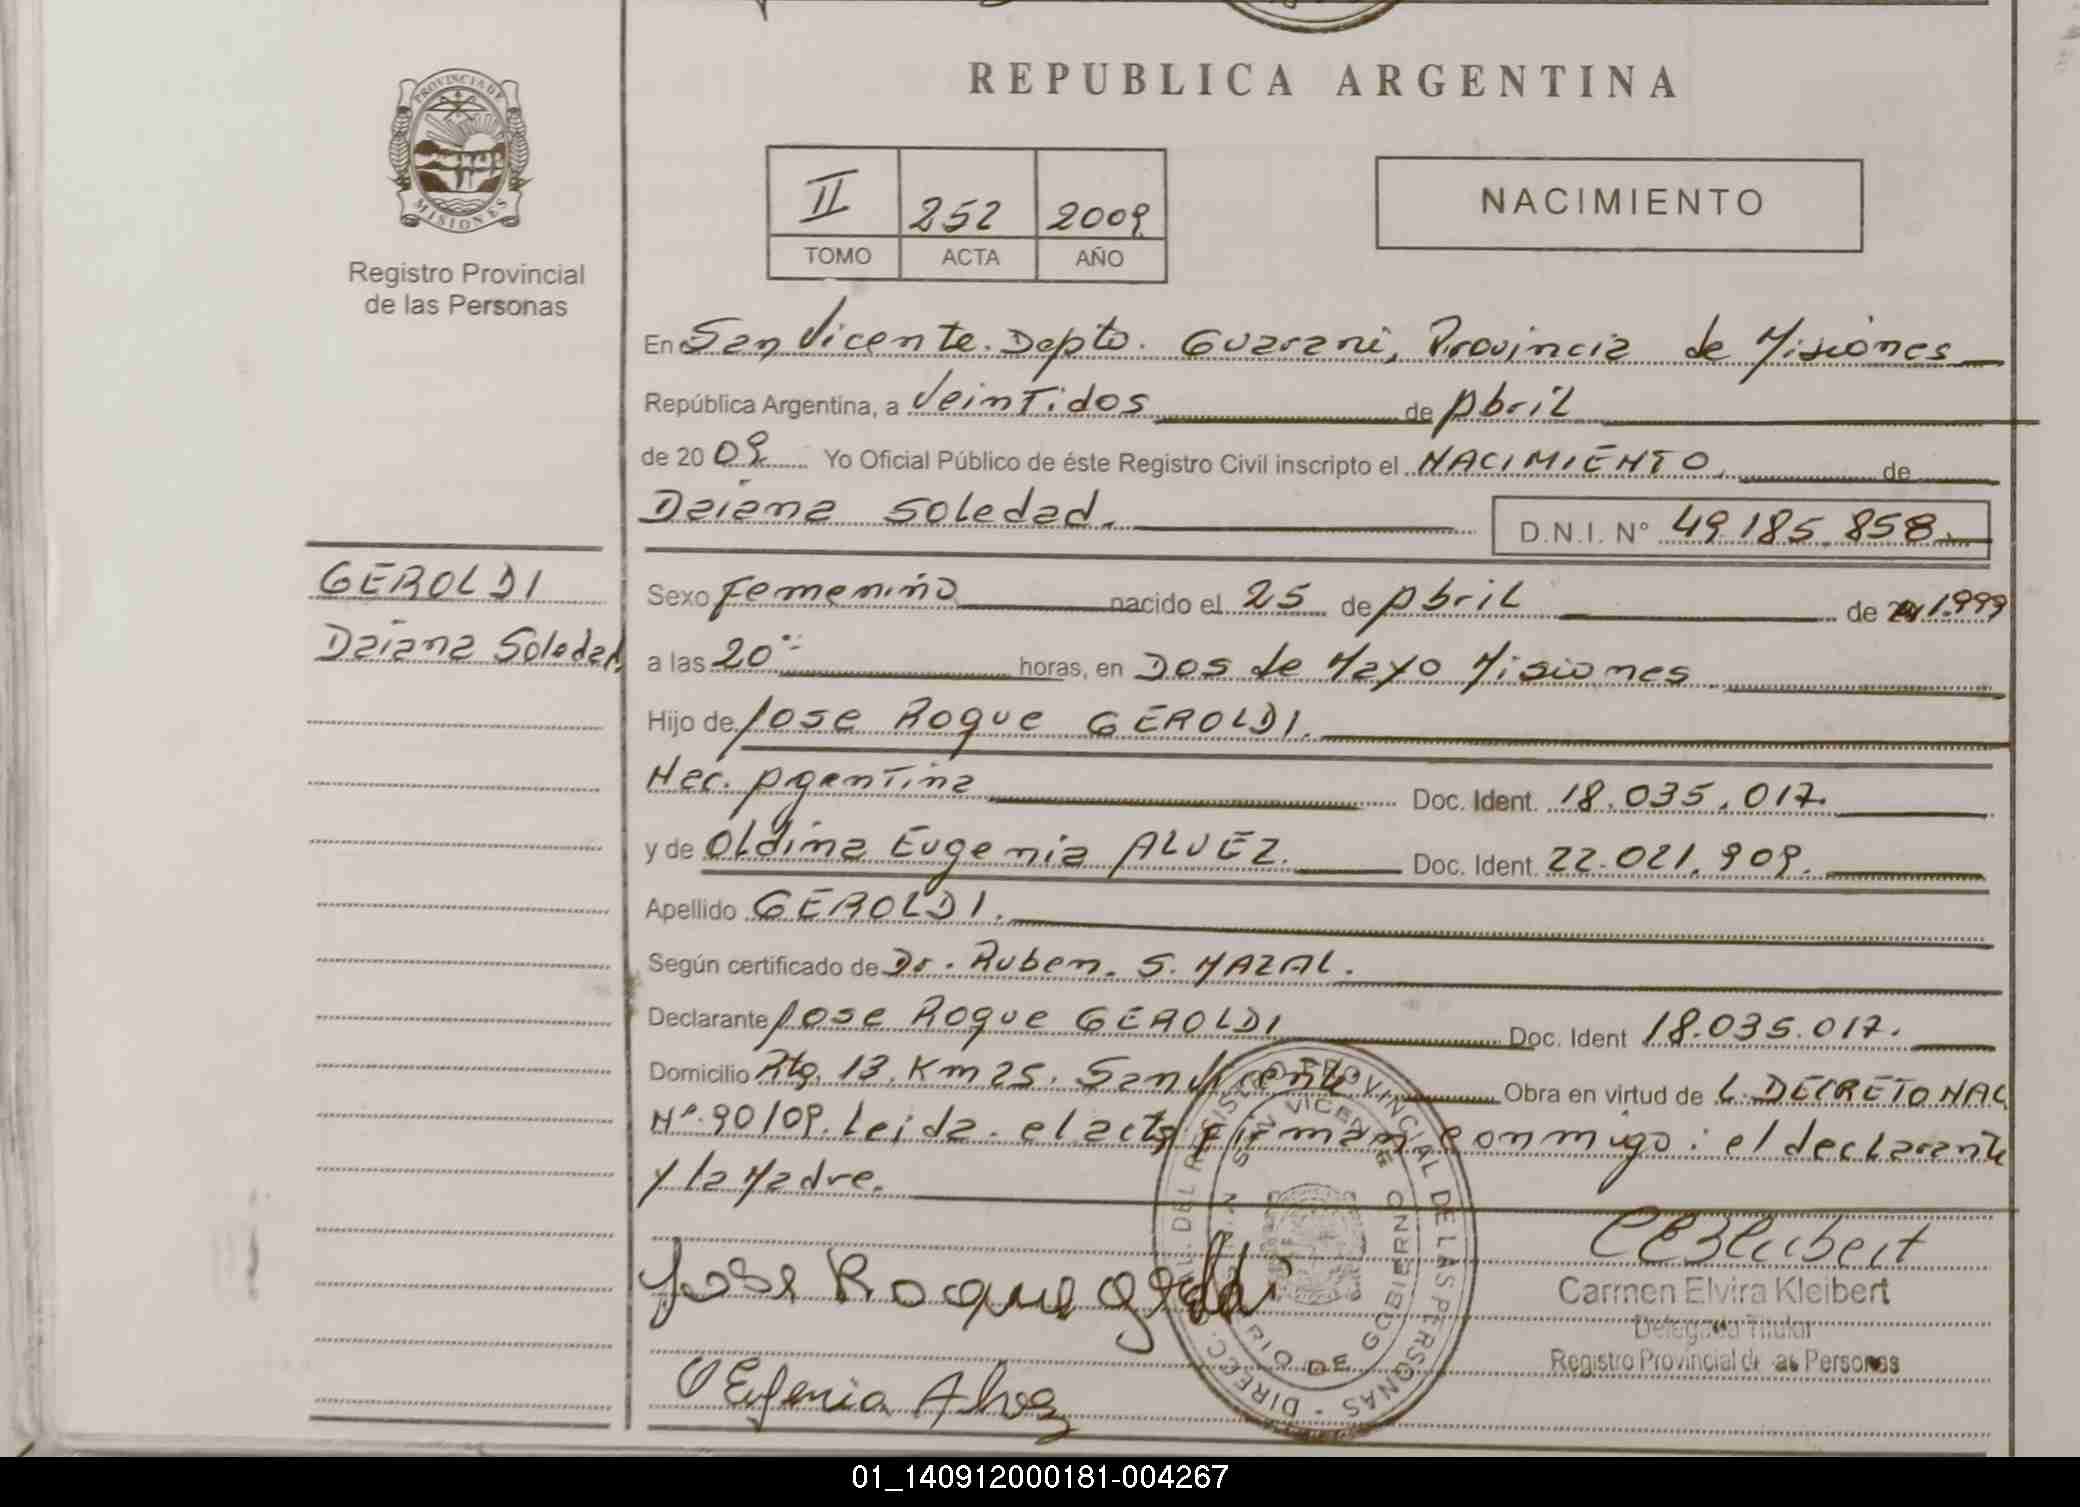 REPUBLICA ARGENTINA
PROVINCIA DE
MISIONES
Registro Provincial
de las Personas
II 252 2009
TOMO ACTA AÑO
NACIMIENTO
En San Vicente. Depto. Guarani, Provincia de Misiones
República Argentina, a Veintidos de Abril
de 2009 Yo Oficial Público de éste Registro Civil inscripto el NACIMIENTO. de
Daiana Soledad. D.N.I. N° 49.185.858.
GEROLDI
Daiana Soledad
Sexo Femenino nacido el 25 de Abril de 1.999
a las 20 horas, en Dos de Mayo Misiones
Hijo de Jose Roque GEROLDI.
Nac. Argentina Doc. Ident. 18.035.017.
y de Oldina Eugenia ALVEZ. Doc. Ident. 22.021.909.
Apellido GEROLDI.
Según certificado de Dr. Ruben. S. MAZAL.
Declarante Jose Roque GEROLDI Doc. Ident 18.035.017.
Domicilio Rta. 13. Km 25. San Vicente Obra en virtud de L. DECRETO NAC
Nº.90/09. Leida. el acta firman conmigo: el declarante
y la Madre.
DIRECC. GRAL. DEL REGISTRO PROVINCIAL DE LAS PERSONAS
SAN VICENTE
MINISTERIO DE GOBIERNO
Jose Roque Geroldi
O Eugenia Alvez
CEKleibert
Carmen Elvira Kleibert
Delegada Titular
Registro Provincial de las Personas
01_140912000181-004267